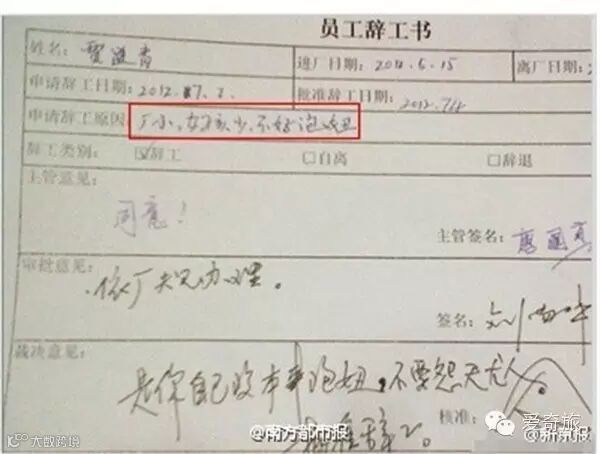 员工辞工书
姓名: 进厂日期: 2012.6.15 离厂日期:
申请辞工日期: 2012.7.2. 批准辞工日期: 2012.7/4
申请辞工原因 厂小、女孩少、不好泡妞
辞工类别: ☑辞工 □自离 □辞退
主管意见:
同意!
主管签名:
审批意见:
依厂规办理。
签名:
裁决意见:
是你自己没本事泡妞,不要怨天尤人
核准:
批准辞工。
大数跨境
@南方都市报
爱奇旅
@新京报